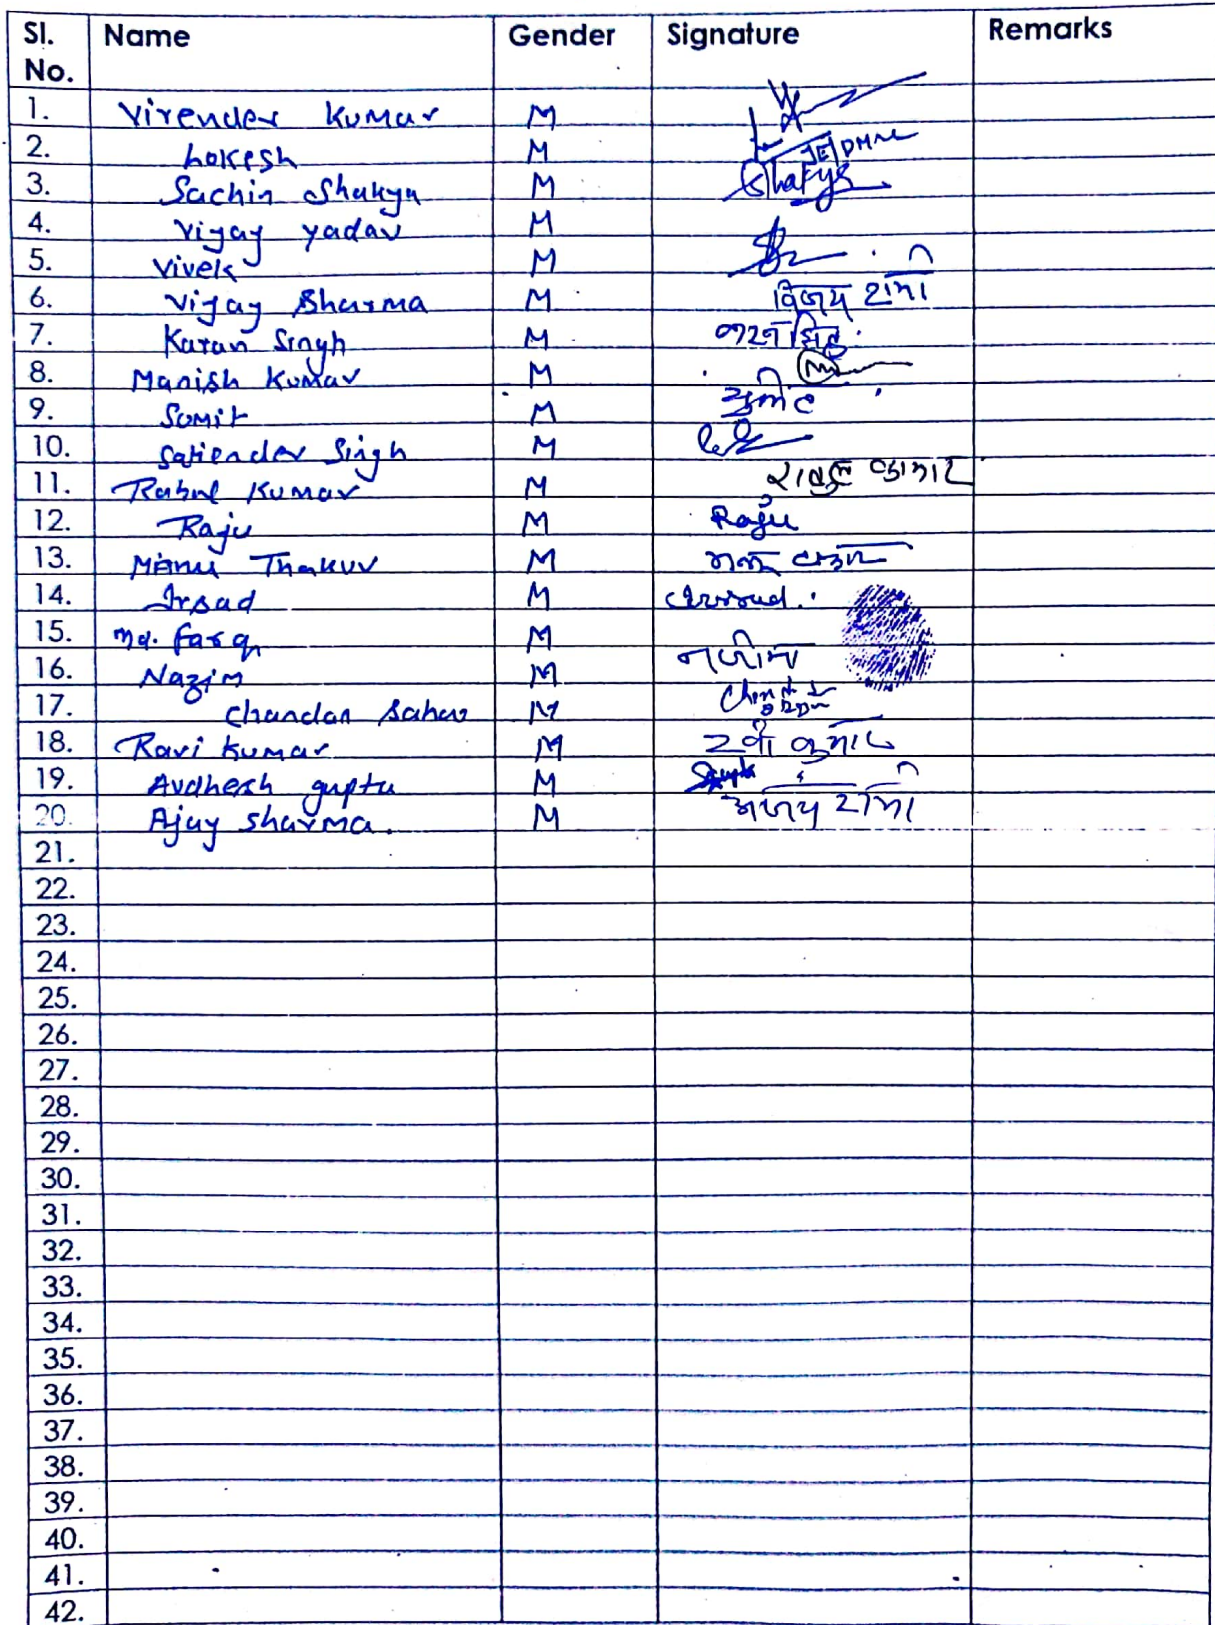 Sl. No. Name Gender Signature Remarks
1. Virender Kumar M
2. Lokesh M JE/DHM
3. Sachin Shakya M Shakya
4. Vijay yadav M
5. Vivek M
6. Vijay Sharma M विजय शर्मा
7. Karan Singh M करन सिंह
8. Manish Kumar M
9. Sumit M सुमित
10. Satiender Singh M
11. Rahul Kumar M राहुल कुमार
12. Raju M Raju
13. Manu Thakur M
14. Irsad M
15. Md. M
16. Nazim M नाजीम
17. Chandan Sahav M
18. Ravi Kumar M रवी कुमार
19. Avdhesh gupta M
20. Ajay Sharma. M अजय शर्मा
21.
22.
23.
24.
25.
26.
27.
28.
29.
30.
31.
32.
33.
34.
35.
36.
37.
38.
39.
40.
41.
42.